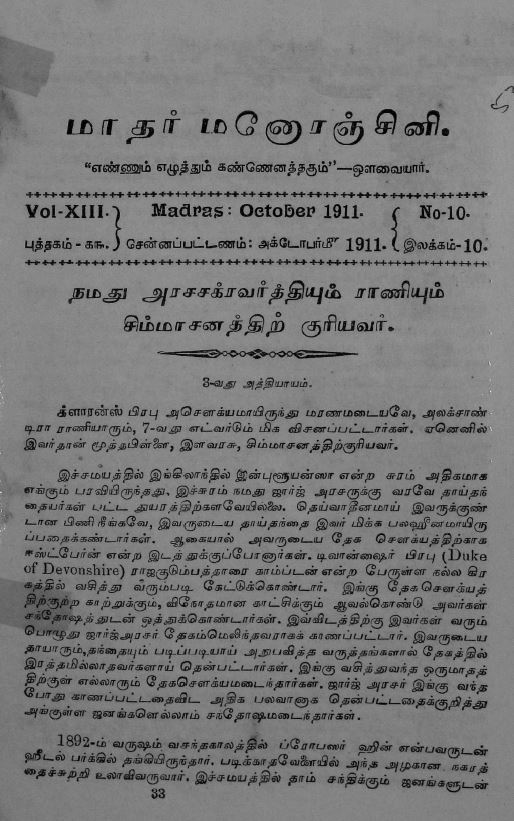 மாதர் மனோரஞ்சினி.
"எண்ணும் எழுத்தும் கண்ணெனத்தகும்"—ஔவையார்.
Vol-XIII. Madras: October 1911. No-10.
புத்தகம் - க௩. சென்னப்பட்டணம்: அக்டோபர்மீ 1911. இலக்கம்-10.
நமது அரசசக்ரவர்த்தியும் ராணியும்
சிம்மாசனத்திற் குரியவர்.
3-வது அத்தியாயம்.
க்ளாரன்ஸ் பிரபு அசௌக்யமாயிருந்து மரணமடையவே, அலக்சாண்
டிரா ராணியாரும், 7-வது எட்வர்டும் மிக விசனப்பட்டார்கள். ஏனெனில்
இவர்தான் மூத்தபிள்ளை, இளவரசு, சிம்மாசனத்திற்குரியவர்.
இச்சமயத்தில் இங்கிலாந்தில் இன்புளூயன்ஸா என்ற சுரம் அதிகமாக
எங்கும் பரவியிருந்தது. இச்சுரம் நமது ஜார்ஜ் அரசருக்கு வரவே தாய்தந்
தையர்கள் பட்ட துயரத்திற்களவேயில்லை. தெய்வாதீனமாய் இவருக்குண்
டான பிணி நீங்கவே, இவருடைய தாய்தந்தை இவர் மிக்க பலஹீனமாயிரு
ப்பதைக்கண்டார்கள். ஆகையால் அவருடைய தேக சௌக்யத்திற்காக
ஈஸ்ட்பேர்ன் என்ற இடத்துக்குப்போனார்கள். டிவான்ஷைர் பிரபு (Duke
of Devonshire) ராஜகுடும்பத்தாரை காம்ப்டன் என்ற பேருள்ள நல்ல கிர
கத்தில் வசித்து வரும்படி கேட்டுக்கொண்டார். இங்கு தேகசௌக்யத்
திற்குற்ற காற்றுக்கும், விநோதமான காட்சிக்கும் ஆவல்கொண்டு அவர்கள்
சந்தோஷத்துடன் ஒத்துக்கொண்டார்கள். இவ்விடத்திற்கு இவர்கள் வரும்
பொழுது ஜார்ஜ்அரசர் தேகம்மெலிந்தவராகக் காணப்பட்டார். இவருடைய
தாயாரும்,தந்தையும் படிப்படியாய் அநுபவித்த வருத்தங்களால் தேகத்தில்
இரத்தமில்லாதவர்களாய் தென்பட்டார்கள். இங்கு வசித்துவந்த ஒருமாதத்
திற்குள் எல்லாரும் தேகசௌக்யமடைந்தார்கள். ஜார்ஜ் அரசர் இங்கு வந்த
போது காணப்பட்டதைவிட அதிக பலவானாக தென்பட்டதைக்குறித்து
அங்குள்ள ஜனங்களெல்லாம் சந்தோஷமடைந்தார்கள்.
1892-ம் வருஷம் வசந்தகாலத்தில் ப்ரோபஸர் ஹின் என்பவருடன்
ஹீடல் பர்க்கில் தங்கியிருந்தார். படிக்காதவேளையில் அந்த அழகான நகரத்
தைச்சுற்றி உலாவிவருவார். இச்சமயத்தில் தாம் சந்திக்கும் ஜனங்களுடன்
33